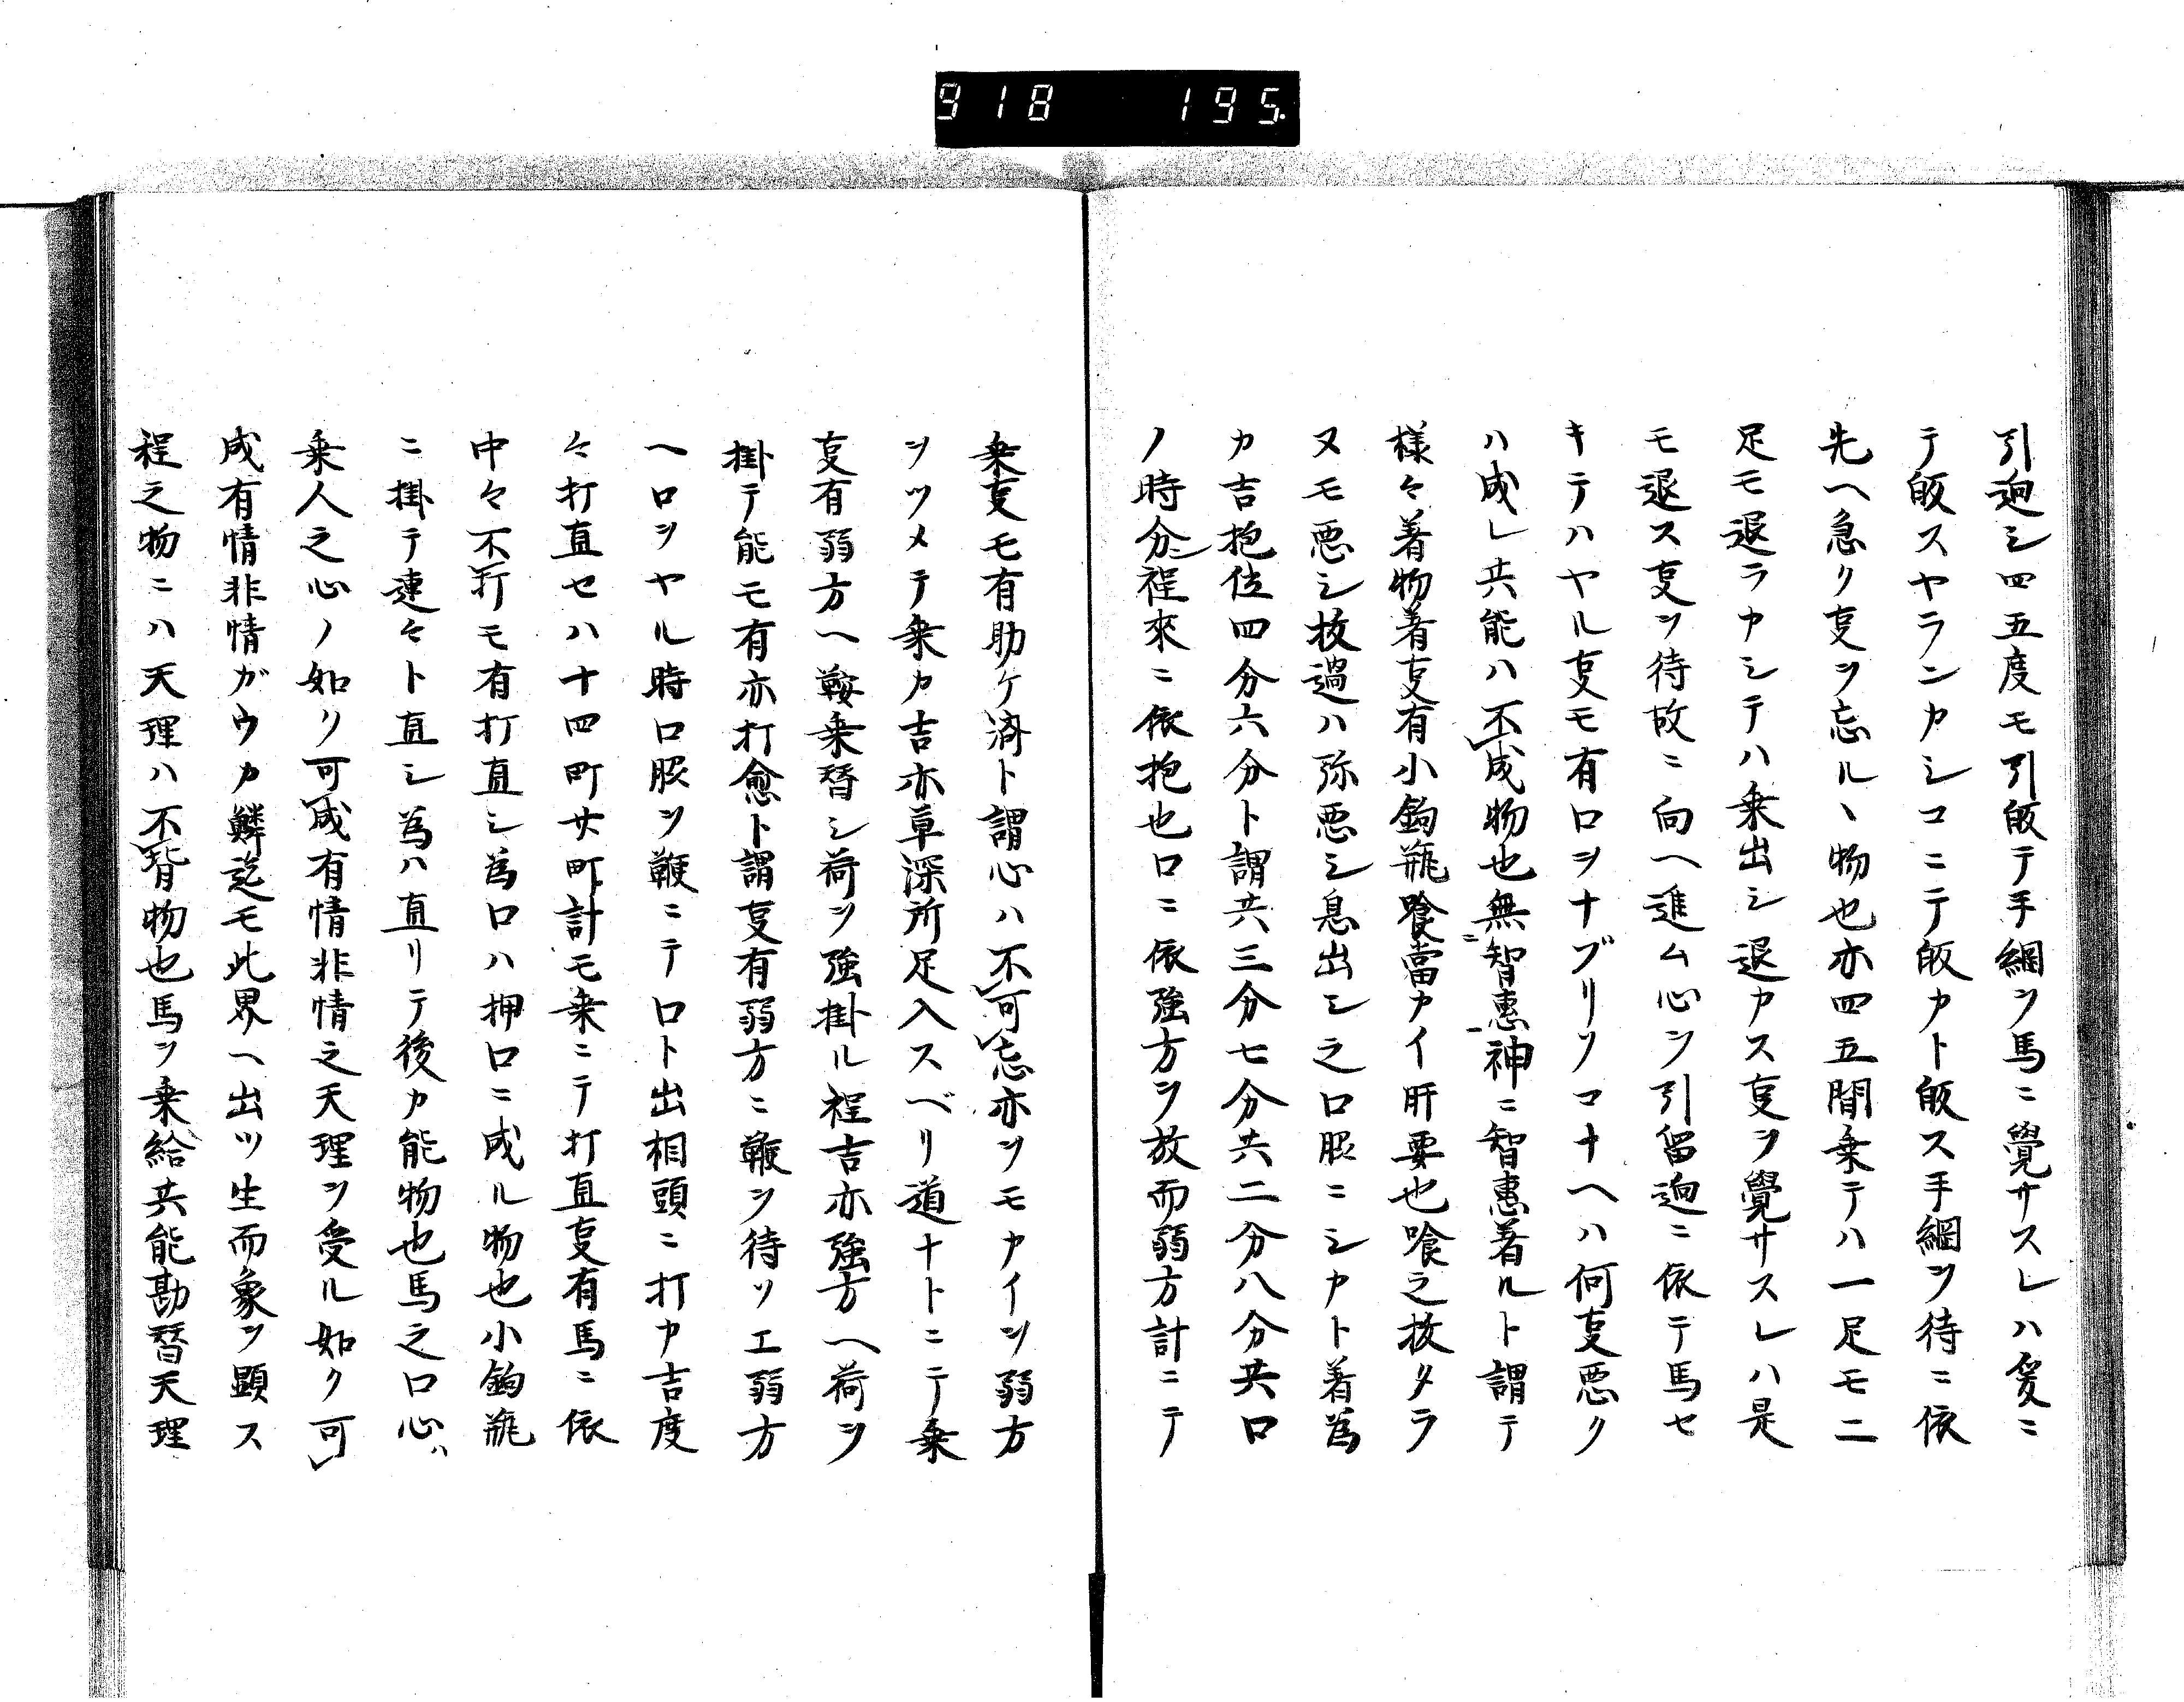 918 195
引廻シ四五度モ引皈テ手綱ヲ馬ニ覺サスレハ爰ニ
テ皈スヤランカシコニテ皈カト皈ス手綱ヲ待ニ依
先ヘ急リ叓ヲ忘ルヽ物也亦四五間乗テハ一足モ二
足モ退ラカシテハ乗出シ退カス叓ヲ覺サスレハ是
モ退ス叓ヲ待故ニ向ヘ進ム心ヲ引留廻ニ依テ馬セ
キテハヤル叓モ有口ヲナブリソコナヘハ何叓悪ク
ハ成レ共能ハ不レ成物也無ニ智惠一神ニ智惠着ルト謂テ
様々着物着叓有小鈎瓶喰當カイ肝要也喰之抜タラ
ヌモ悪シ抜過ハ弥悪シ息出シ之口脹ニシカト着為
カ吉抱位四分六分ト謂共三分七分共二分八分共口
ノ時分ニ程來ニ依抱也口ニ依強方ヲ放而弱方計ニテ
乗叓モ有助ケ済ト謂心ハ不レ可レ忘亦ヲモカイヲ弱方
ヲツメテ乗カ吉亦草深所足入スベリ道ナトニテ乗
叓有弱方ヘ鞍乗替シ荷ヲ強掛ル程吉亦強方ヘ荷ヲ
掛テ能モ有亦打愈ト謂叓有弱方ニ鞭ヲ待ソエ弱方
ヘロヲヤル時口脹ヲ鞭ニテロト出相頭ニ打カ吉度
々打直セハ十四町廿町計モ乗ニテ打直叓有馬ニ依
中々不レ打モ有打直シ為口ハ押口ニ成ル物也小鈎瓶
ニ掛テ連々ト直シ為ハ直リテ後カ能物也馬之口心ハ
乗人之心ノ如リ可レ成有情非情之天理ヲ受ル如ク可レ
成有情非情ガウカ鱗迄モ此界ヘ出ツ生而象ヲ顕ス
程之物ニハ天理ハ不レ背物也馬ヲ乗給共能勘替天理